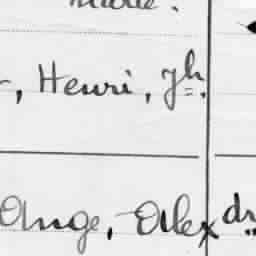 , Henri, Jh.
Ange, Alexdr